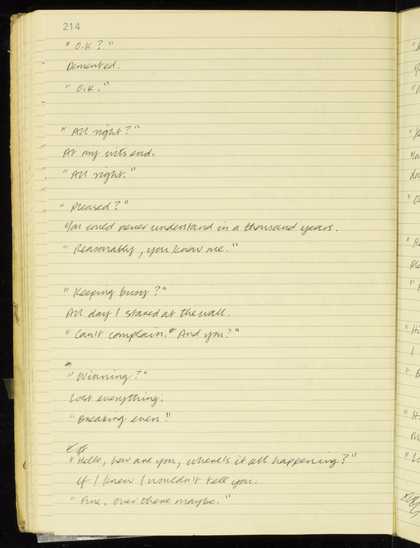 214
"O.K?"
Demented.
"O.K."
"All right?"
At my wits end.
"All right."
"Pleased?"
You could never understand in a thousand years.
"Reasonably, you know me."
"Keeping busy?"
All day I stared at the wall.
"Can't complain. And you?"
"Winning?"
Lost everything.
"Breaking even."
"Hello, how are you, where's it all happening?"
If I knew I wouldn't tell you.
"Fine. Over there maybe."